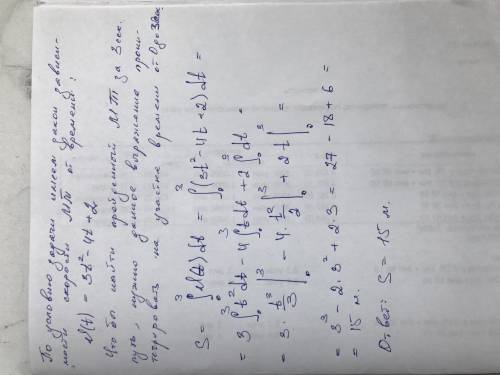 По условию задачи имеем закон зависи-
мости скорости МТ от времени:
v(t) = 3t² - 4t + 2
Что бы найти пройденный МТ за 3 сек.
путь, нужно данное выражение проин-
тегрировать на участке времени от 0 до 3 сек
S = ∫₀³ v(t) dt = ∫₀³ (3t² - 4t + 2) dt =
= 3 ∫₀³ t² dt - 4 ∫₀³ t dt + 2 ∫₀³ dt =
= 3 · t³/3 |₀³ - 4 · t²/2 |₀³ + 2t |₀³ =
= 3³ - 2 · 3² + 2 · 3 = 27 - 18 + 6 =
= 15 м.
Ответ: S = 15 м.